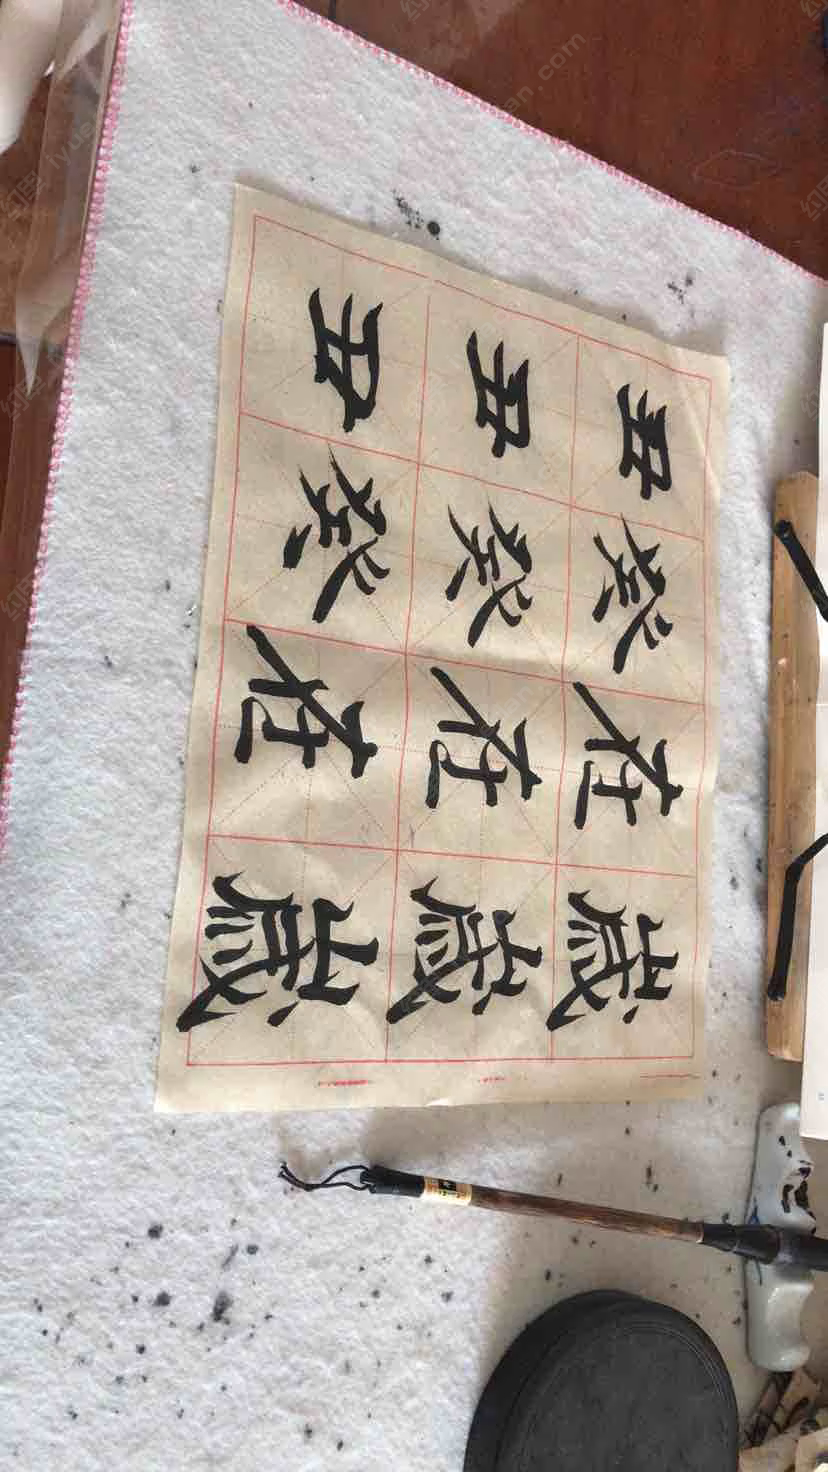 歲歲歲
在在在
癸癸癸
丑丑丑